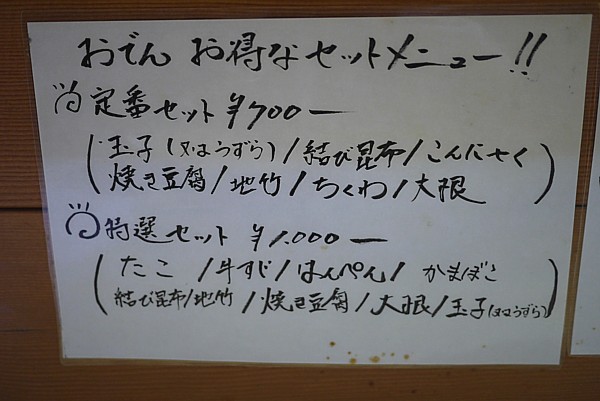 おでん お得なセットメニュー!!
定番セット ¥700ー
(玉子(又はうずら)/結び昆布/こんにゃく
焼き豆腐/地竹/ちくわ/大根)
特選セット ¥1.000ー
(たこ/牛すじ/はんぺん/かまぼこ
結び昆布/地竹/焼き豆腐/大根/玉子(又はうずら))